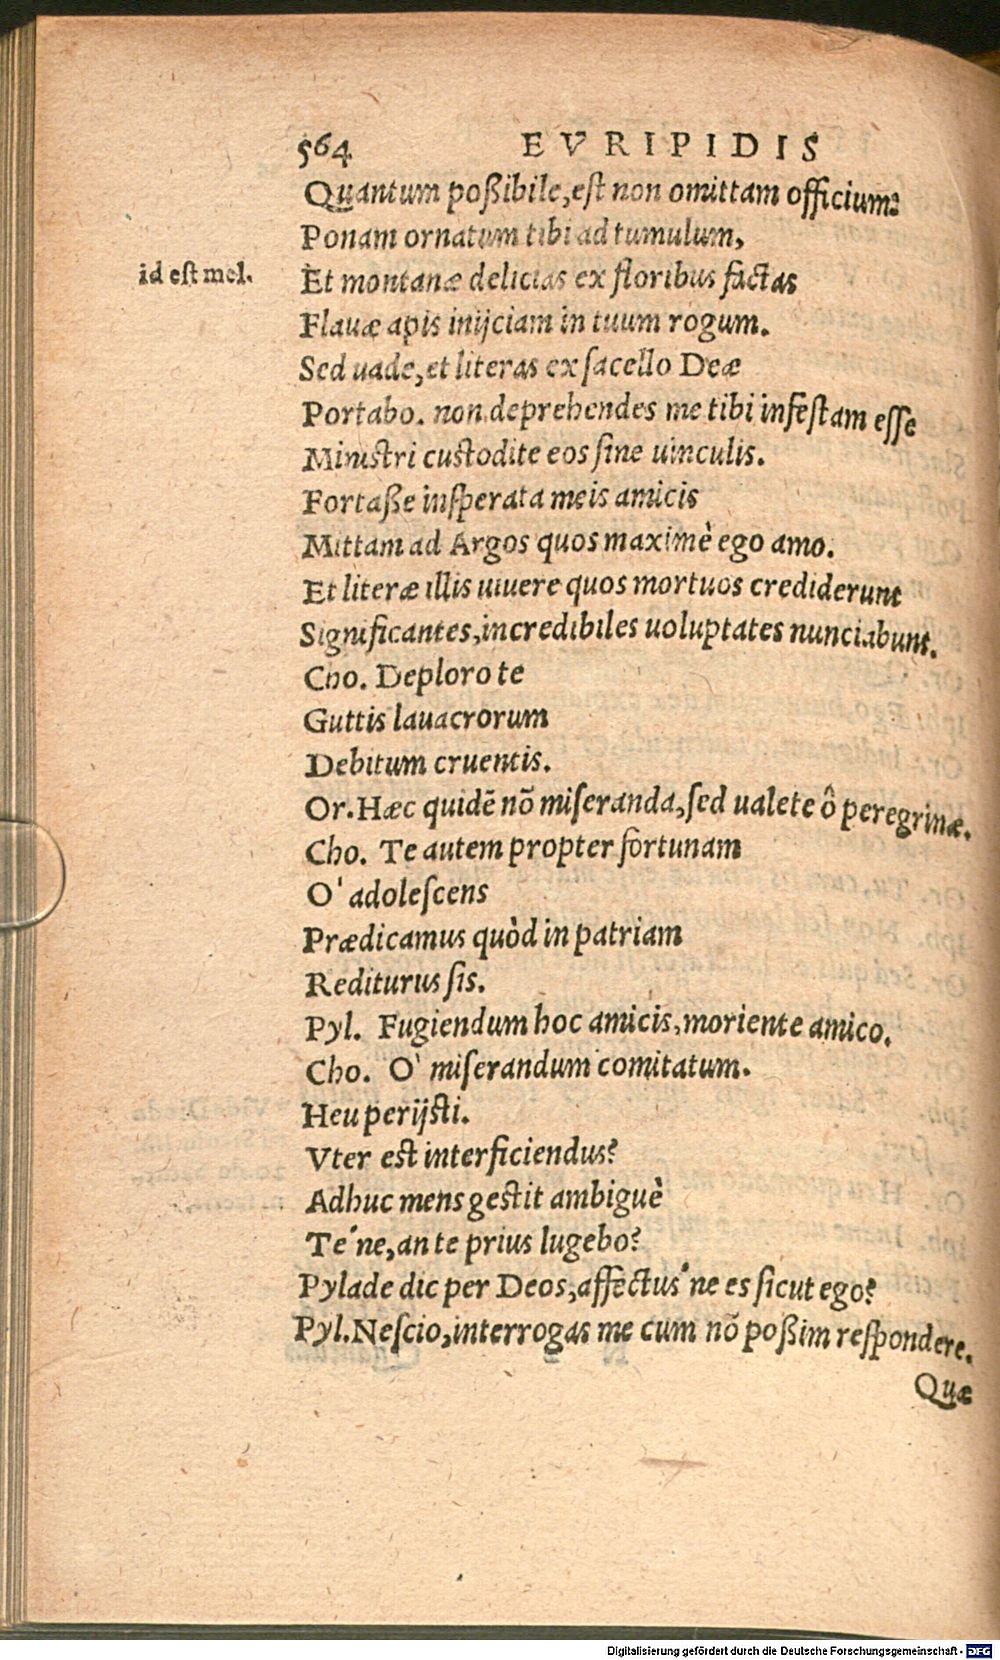 564 EVRIPIDIS
Quantum poßibile, est non omittam officium:
Ponam ornatum tibi ad tumulum,
id est mel.
Et montanæ delicias ex floribus factas
Flauæ apis inijciam in tuum rogum.
Sed uade, et literas ex sacello Deæ
Portabo. non deprehendes me tibi infestam esse
Ministri custodite eos sine uinculis.
Fortaße insperata meis amicis
Mittam ad Argos quos maximè ego amo.
Et literæ illis uiuere quos mortuos crediderunt
Significantes, incredibiles uoluptates nunciabunt.
Cho. Deploro te
Guttis lauacrorum
Debitum cruentis.
Or. Hæc quidē nō miseranda, sed ualete ô peregrinæ.
Cho. Te autem propter fortunam
O' adolescens
Prædicamus quòd in patriam
Rediturus sis.
Pyl. Fugiendum hoc amicis, moriente amico.
Cho. O' miserandum comitatum.
Heu perijsti.
Vter est interficiendus?
Adhuc mens gestit ambiguè
Te'ne, an te prius lugebo?
Pylade dic per Deos, affectus'ne es sicut ego?
Pyl. Nescio, interrogas me cum nō poßim respondere.
Quæ
Digitalisierung gefördert durch die Deutsche Forschungsgemeinschaft - DFG